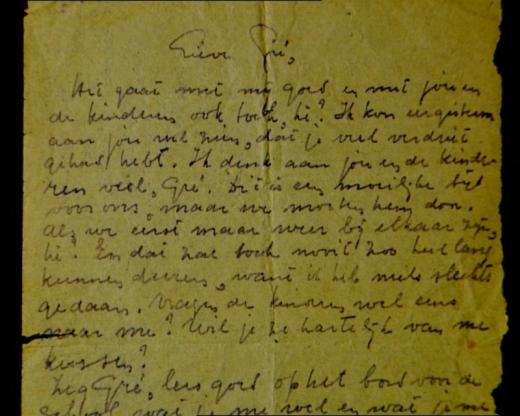 Lieve Gré,
Het gaat met mij goed en met jou en
de kinderen ook toch, hè? Ik kon eergisteren
aan jou wel zien, dat je veel verdriet
gehad hebt. Ik denk aan jou en de kinde-
ren veel, Gré. Dit is een moeilijke tijd
voor ons, maar we moeten hem door.
Als we eerst maar weer bij elkaar zijn,
hè? En dat zal toch nooit zoo heel lang
kunnen duren, want ik heb niets slechts
gedaan. Vragen de kinderen wel eens
naar me? Wil je ze hartelijk van me
kussen?
Zeg Gré, lees goed op het bord voor de
wat je me wel en wat je me